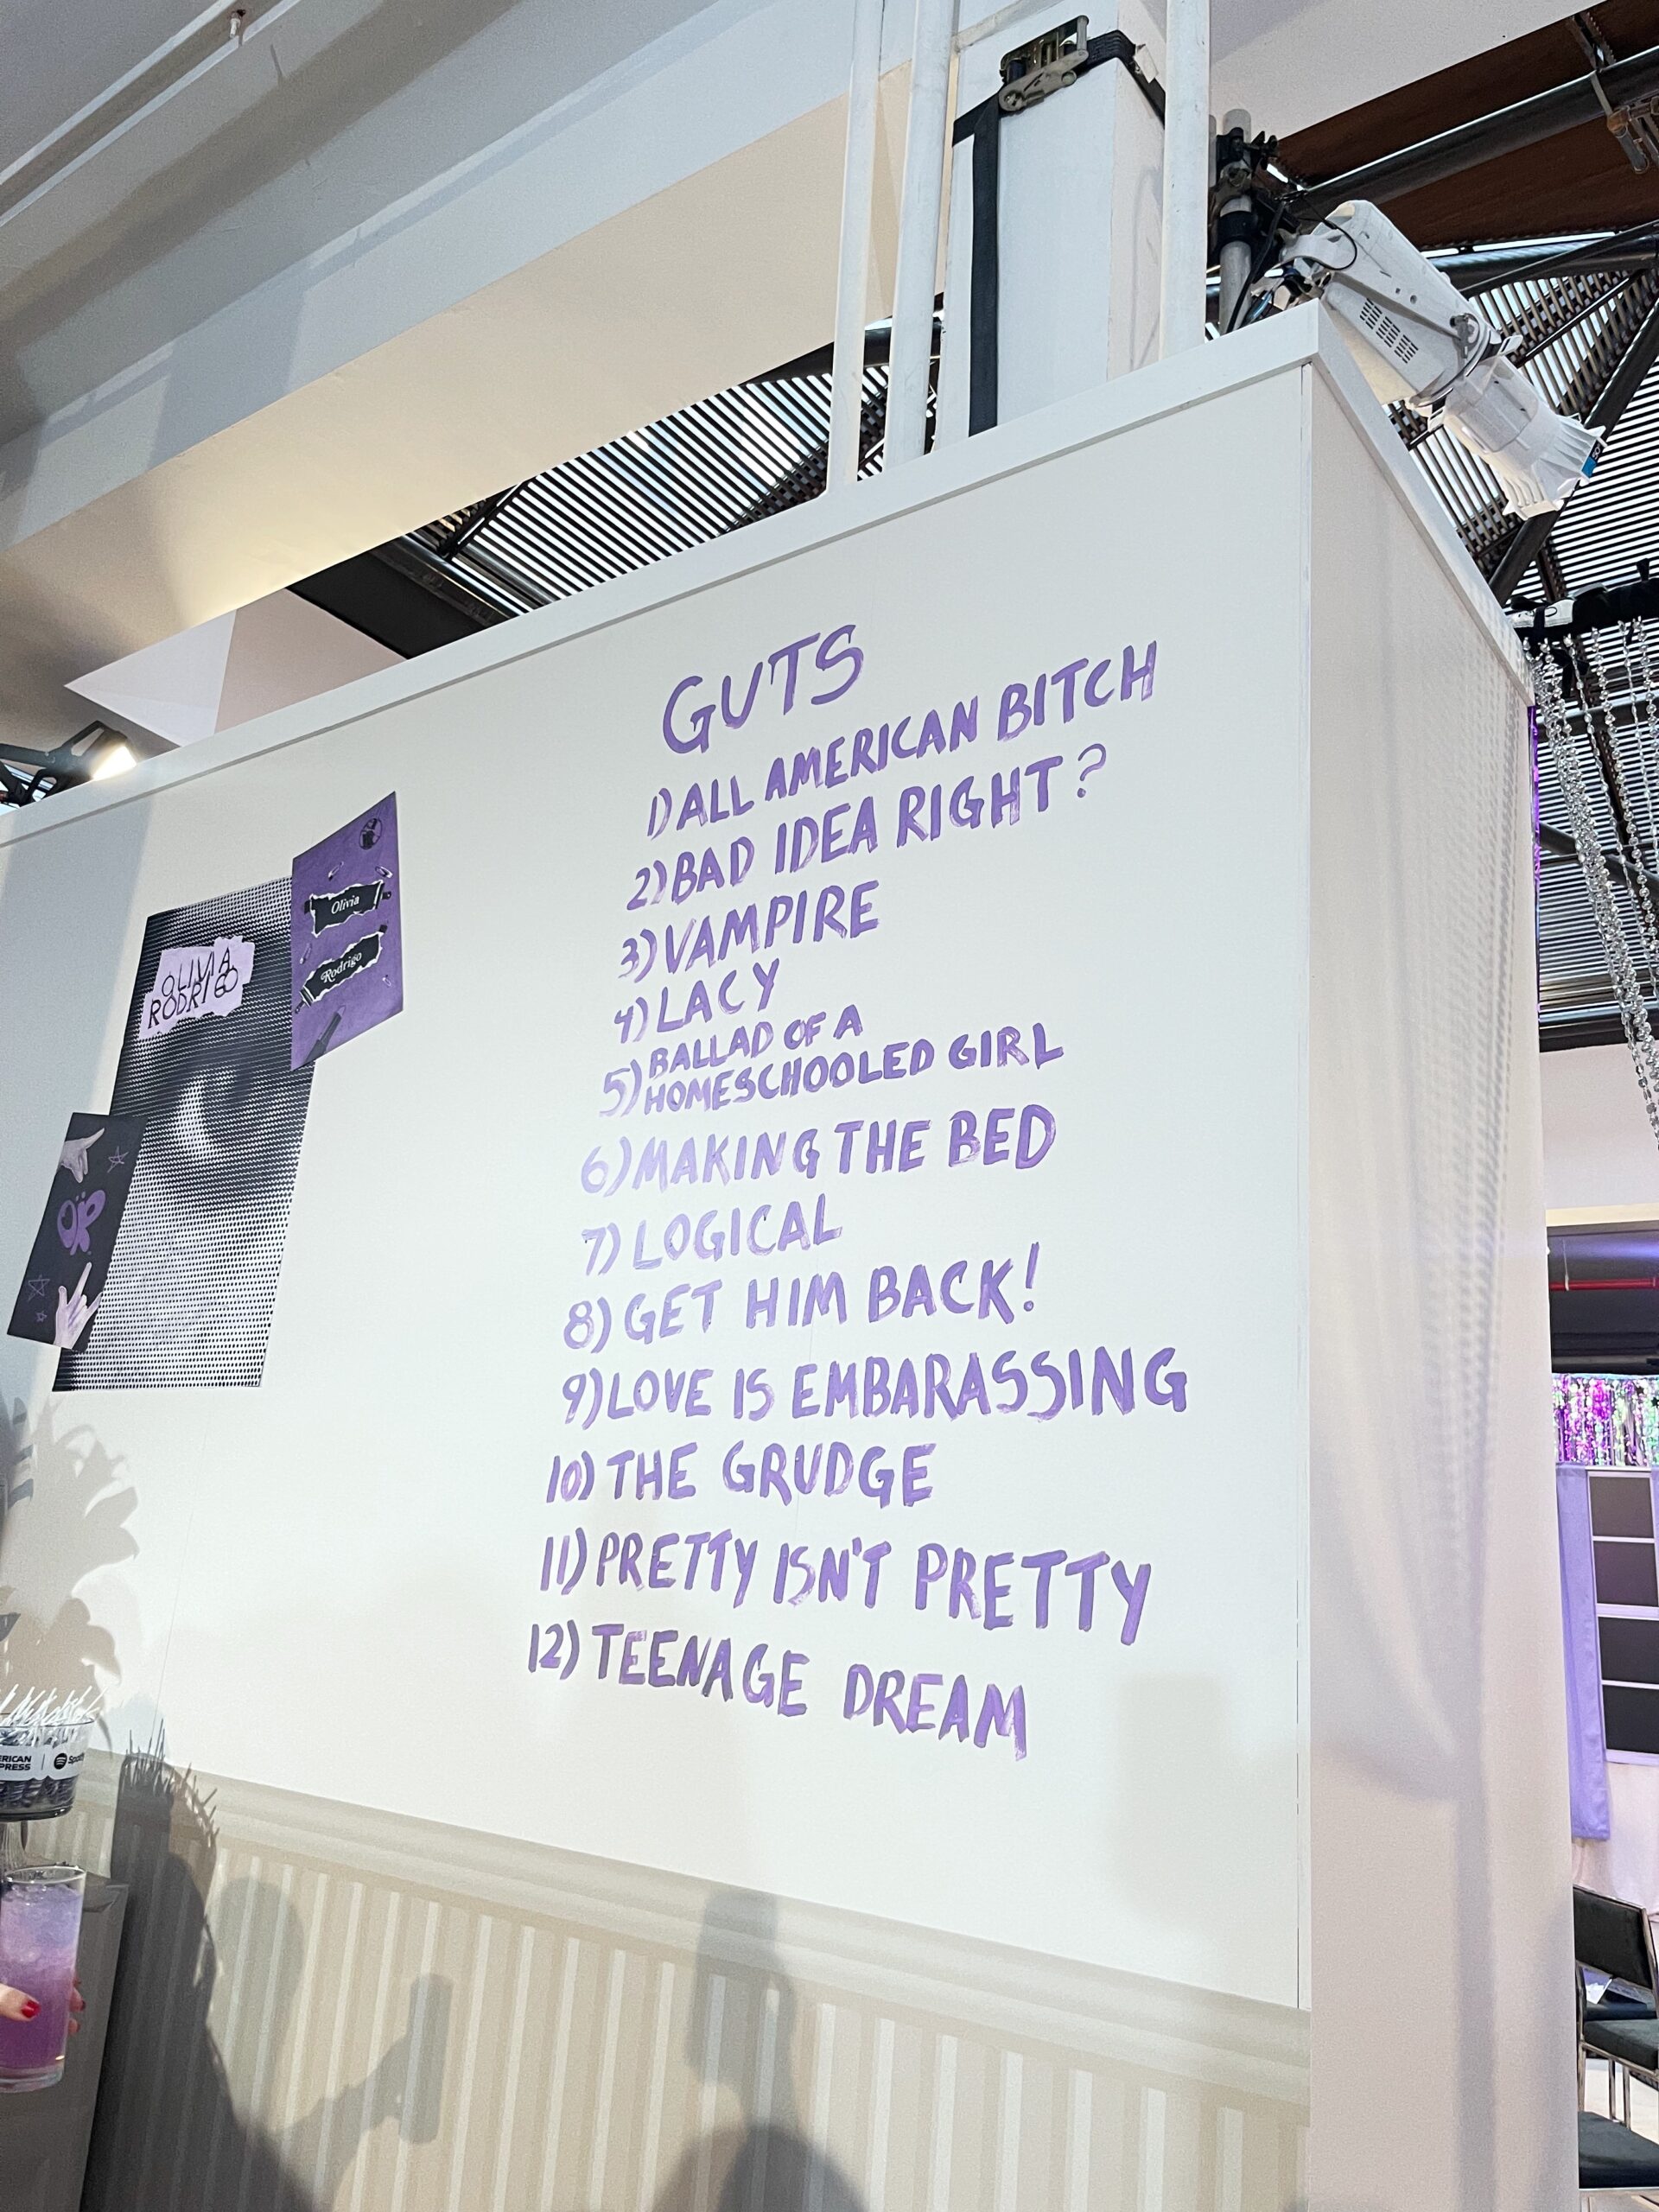 GUTS
1) ALL AMERICAN BITCH
2) BAD IDEA RIGHT?
3) VAMPIRE
4) LACY
5) BALLAD OF A
HOMESCHOOLED GIRL
6) MAKING THE BED
7) LOGICAL
8) GET HIM BACK!
9) LOVE IS EMBARASSING
10) THE GRUDGE
11) PRETTY ISN'T PRETTY
12) TEENAGE DREAM
Olivia
Rodrigo
OLIVIA
RODRIGO
OR